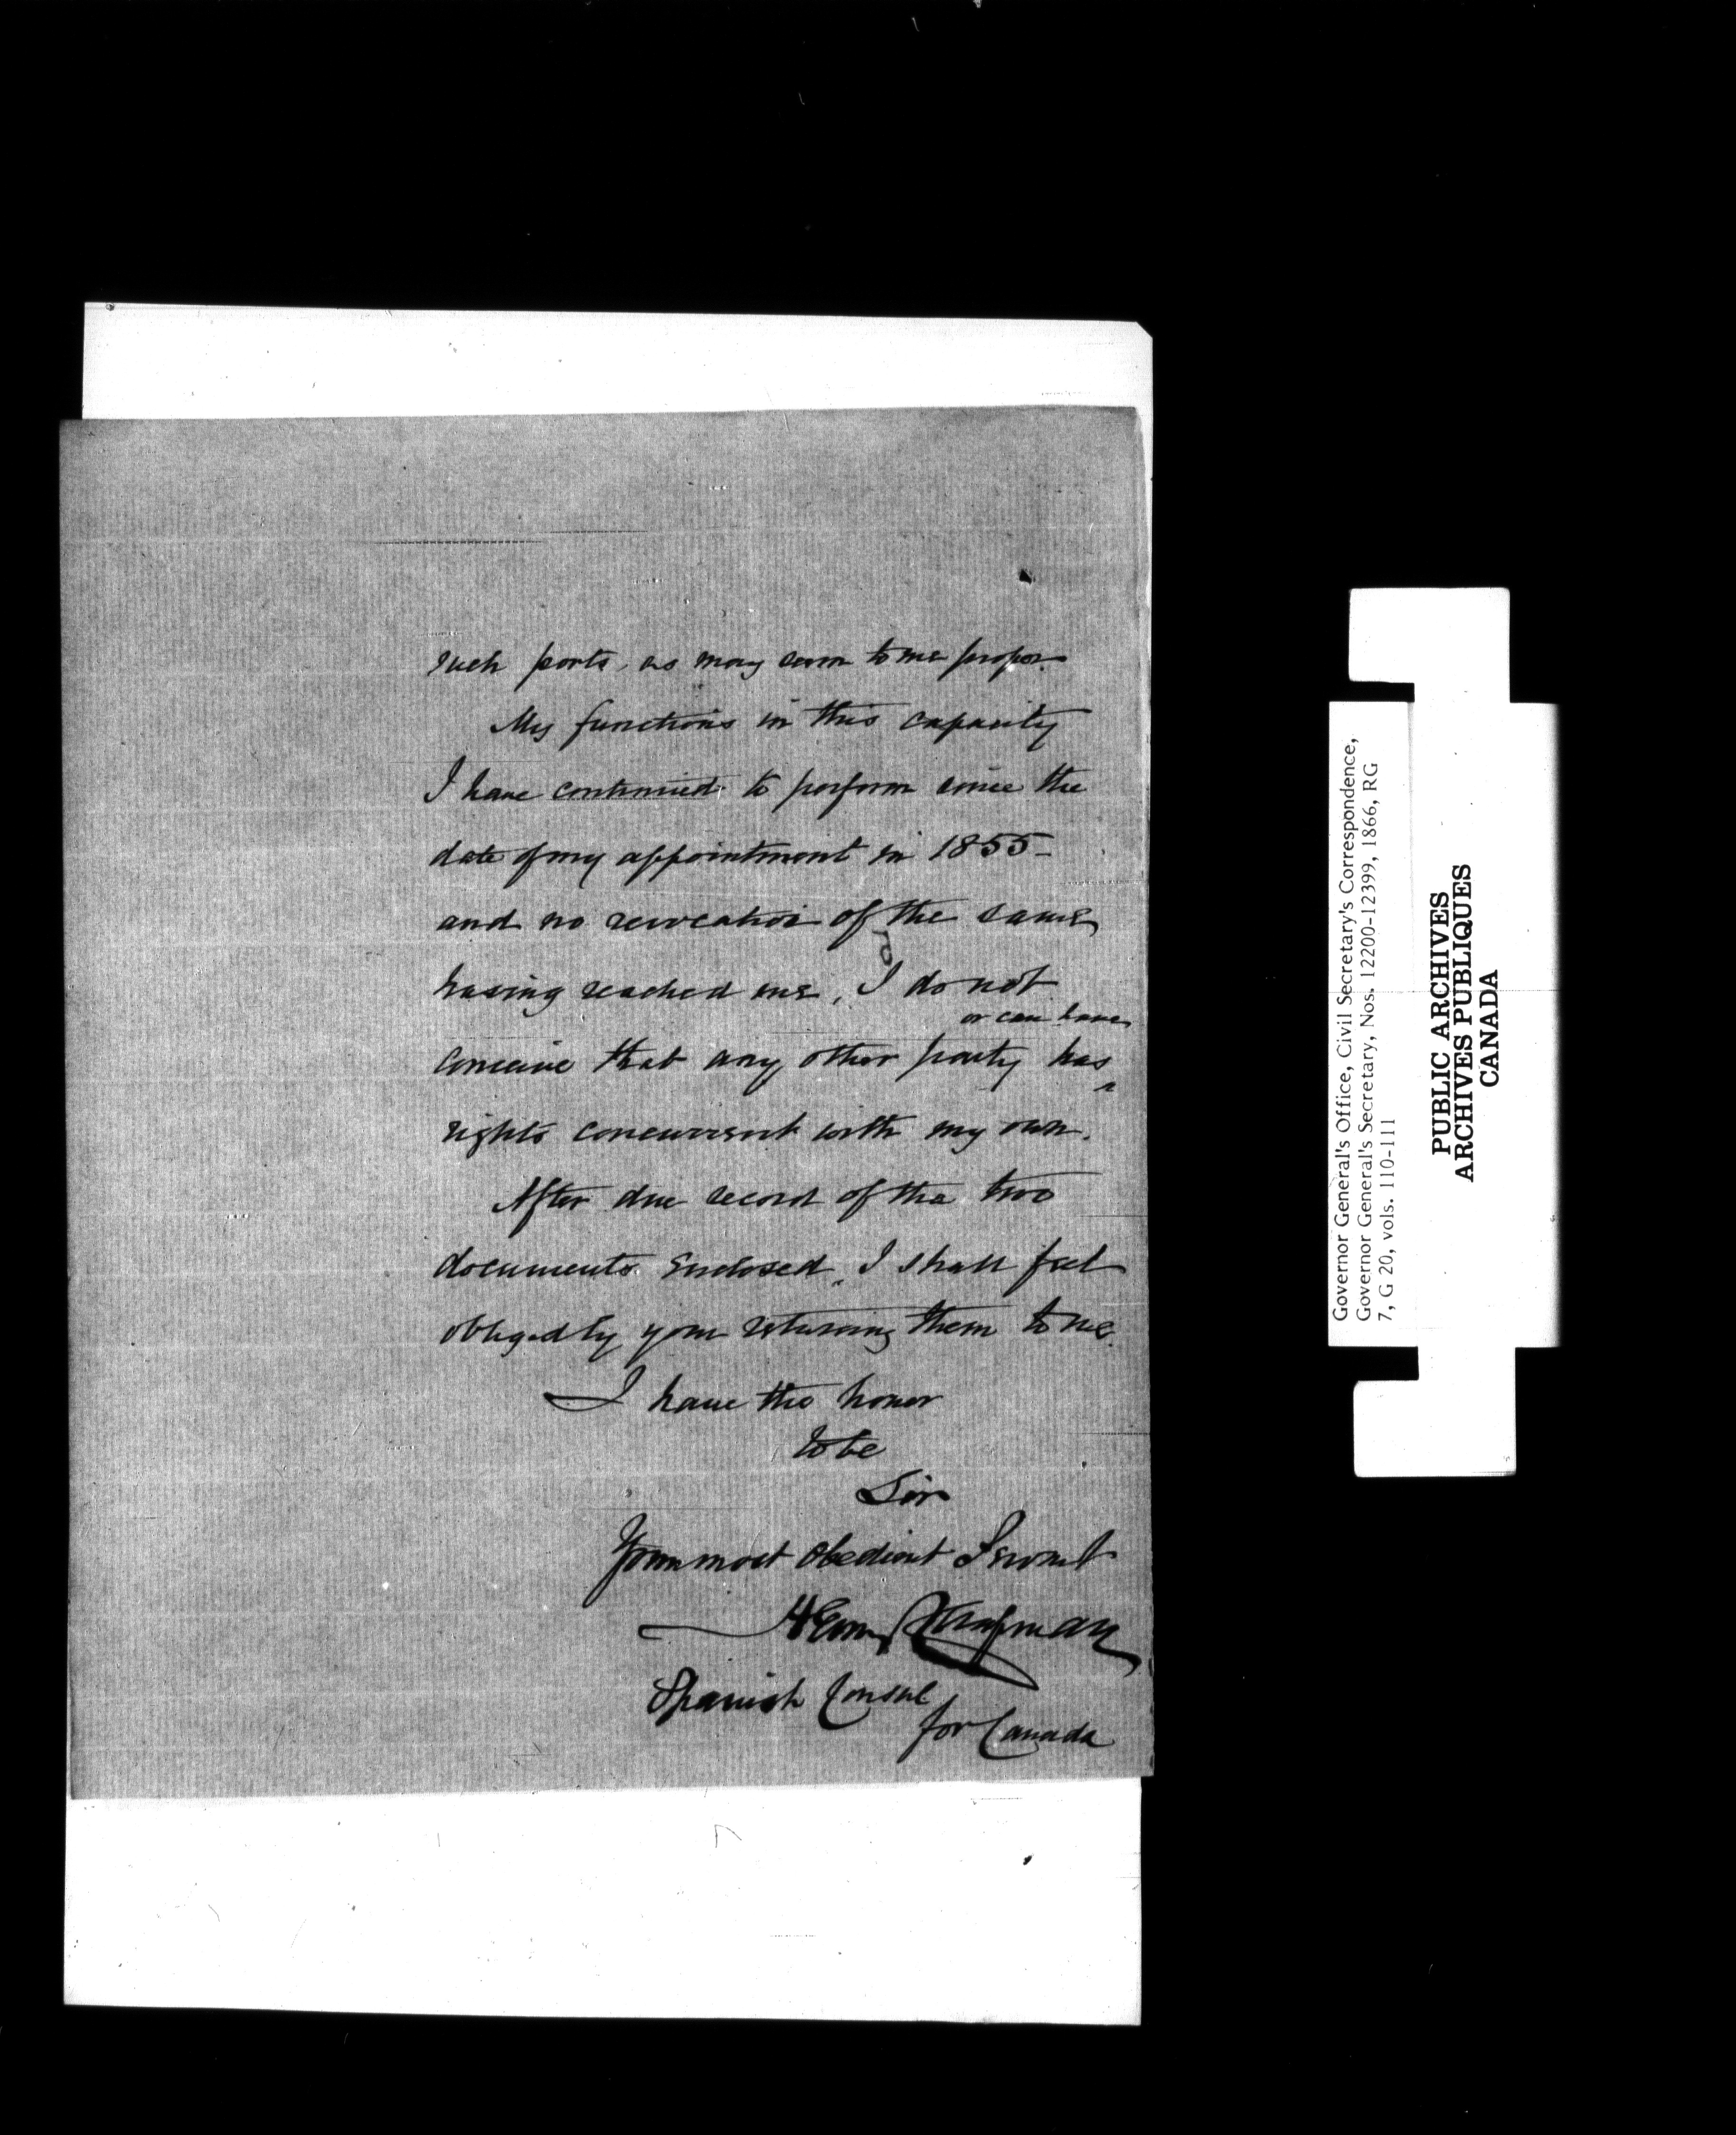 such ports, as may seem to me proper.
My functions in this capacity
I have continued to perform since the
date of my appointment in 1855 -
and no revocation of the same
having reached me, I do not
or can have
conceive that any other party has
rights concurrent with my own.
After due record of the two
documents enclosed, I shall feel
obliged by your returning them to me.
I have the honor
to be
Sir
Your most obedient Servant
Henry Chapman
Spanish Consul
for Canada
Governor General's Office, Civil Secretary's Correspondence,
Governor General's Secretary, Nos. 12200-12399, 1866, RG
7, G 20, vols. 110-111
PUBLIC ARCHIVES
ARCHIVES PUBLIQUES
CANADA